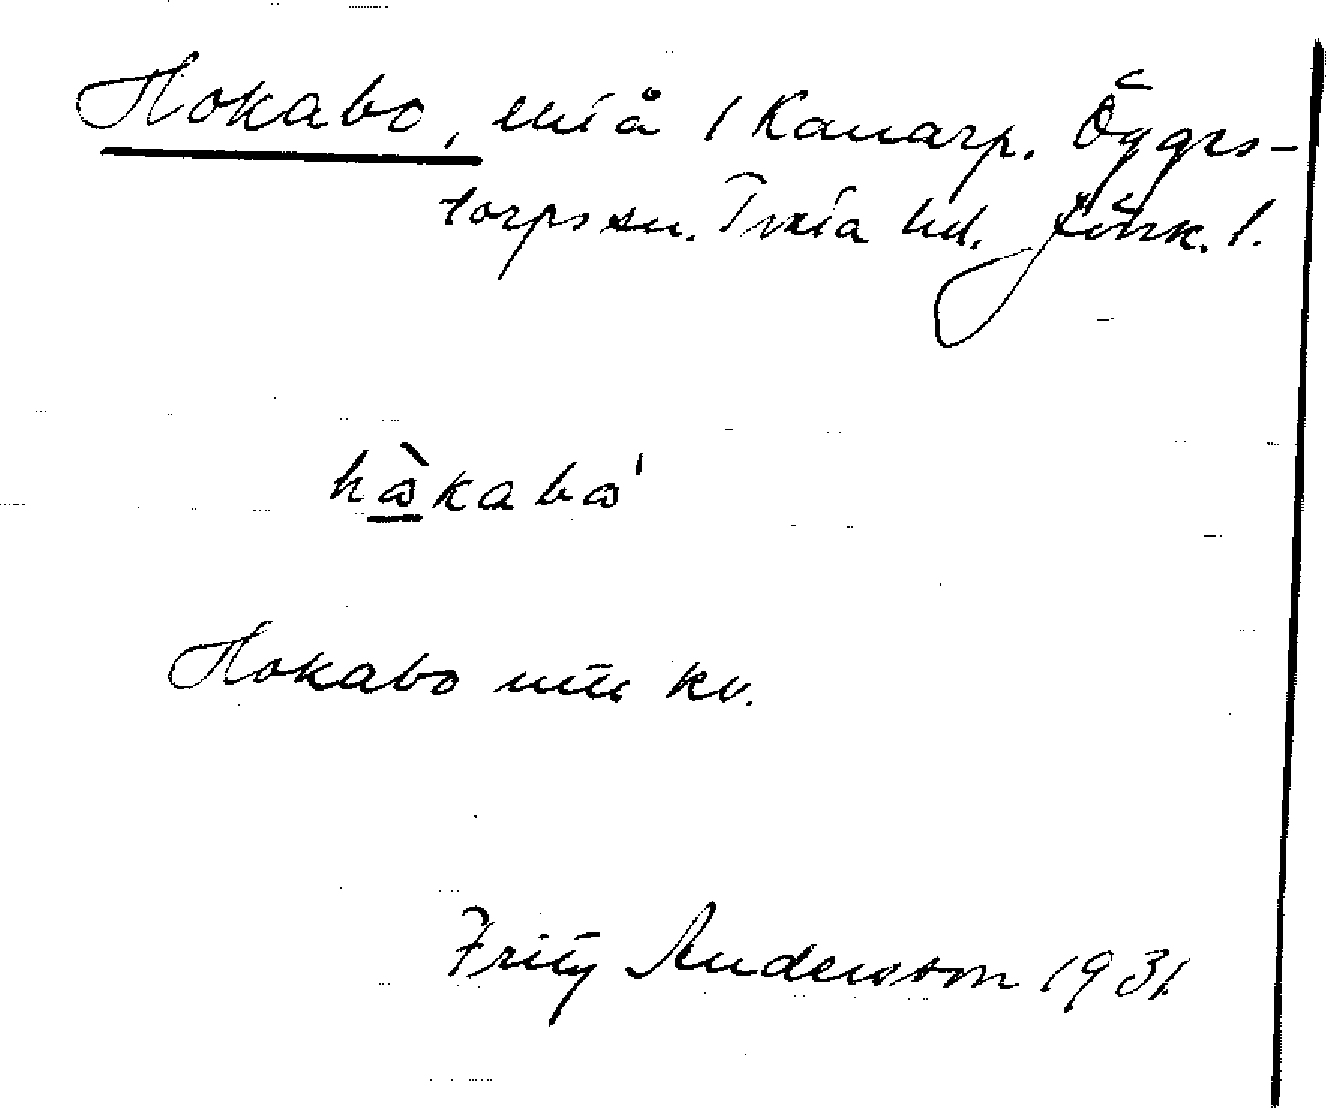 Hokabo, små 1 Kanarp. Öggrs-
torps sn. Tveta hd. Jönk. l.
hå̀kabå'
Hokabo kv.
Fritz Anderson 1931.